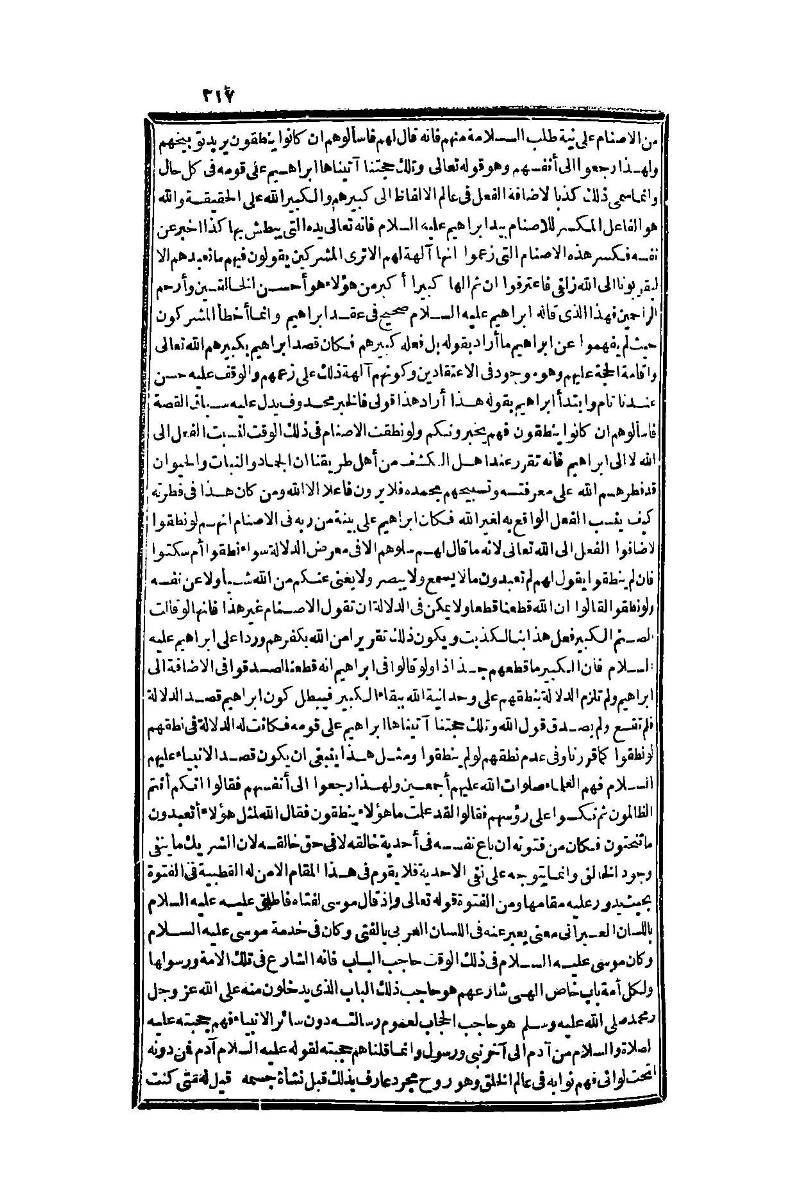 ٣١٧
من الاصنام على نية طلب السلامة منهم فانه قال لهم فاسألوهم ان كانوا ينطقون يريد توبيخهم
ولهذا رجعوا الى أنفسهم وهو قوله تعالى وتلك حجتنا آتيناها ابراهيم على قومه فى كل حال
وانما سمى ذلك كذبا لاضافة الفعل فى عالم الالفاظ الى كبيرهم والكبير الله على الحقيقة والله
هو الفاعل المكسر للاصنام بيد ابراهيم عليه السلام فانه تعالى يده التى يبطش بها كذا اخبر عن
نفسه فكسر هذه الاصنام التى زعموا انها آلهة لهم الاترى المشركين يقولون فيهم ما نعبدهم الا
ليقربونا الى الله زلفى فاعترفوا ان ثم الها كبيرا أكبر من هؤلاء هو أحسن الخالقين وأرحم
الراحمين فهذا الذى قاله ابراهيم عليه السلام صحيح فى عقد ابراهيم وانما أخطأ المشركون
حيث لم يفهموا عن ابراهيم ما أراد بقوله بل فعله كبيرهم فكان قصد ابراهيم بكبيرهم الله تعالى
واقامة الحجة عليهم وهو موجود فى الاعتقادين وكونهم آلهة ذلك على زعمهم والوقف عليه حسن
عندنا تام وابتدأ ابراهيم بقوله هذا أراد هذا قولى فالخبر محذوف يدل عليه سياق القصة
فاسألوهم ان كانوا ينطقون فهم يخبرونكم ولو نطقت الاصنام فى ذلك الوقت لنسبت الفعل الى
الله لا الى ابراهيم فانه تقرر عند اهل الكشف من أهل طريقنا ان الجماد والنبات والحيوان
قد فطرهم الله على معرفته وتسبيحهم بحمده فلا يرون فاعلا الا الله ومن كان هذا فى فطرته
كيف ينسب الفعل الواقع به لغير الله فكان ابراهيم على بينة من ربه فى الاصنام انهم لو نطقوا
لاضافوا الفعل الى الله تعالى لانه ما قال لهم سلوهم الا فى معرض الدلالة سواء نطقوا أم سكتوا
فان لم ينطقوا يقول لهم لم تعبدون ما لا يسمع ولا يبصر ولا يغنى عنكم من الله شيأ ولا عن نفسه
ولو نطقوا لقالوا ان الله قطعنا قطعا ولا يمكن فى الدلالة ان تقول الاصنام غير هذا فانها لو قالت
الصنم الكبير فعل هذا بنا لكذبت ويكون ذلك تقريرا من الله بكفرهم وردا على ابراهيم عليه
السلام فان الكبير ما قطعهم جذاذا ولو قالوا فى ابراهيم انه قطعنا لصدقوا فى الاضافة الى
ابراهيم ولم تلزم الدلالة بنطقهم على وحدانية الله ببقاء الكبير فيبطل كون ابراهيم قصد الدلالة
فلم تقع ولم يصدق قول الله وتلك حجتنا آتيناها ابراهيم على قومه فكانت له الدلالة فى نطقهم
لو نطقوا كما قررنا وفى عدم نطقهم لو لم ينطقوا ومثل هذا ينبغى ان يكون قصد الانبياء عليهم
السلام فهم العلماء صلوات الله عليهم أجمعين ولهذا رجعوا الى أنفسهم فقالوا انكم أنتم
الظالمون ثم نكسوا على رؤسهم فقالوا لقد علمت ما هؤلاء ينطقون فقال الله لمثل هؤلاء أتعبدون
ما تنحتون فكان من فتوته ان باع نفسه فى أحدية خالقه لا فى حق خالقه لان الشريك ما ينفى
وجود الخالق وانما يتوجه على نفى الاحدية فلا يقوم فى هذا المقام الا من له القطبية فى الفتوة
بحيث يدور عليه مقامها ومن الفتوة قوله تعالى واذ قال موسى لفتاه فاطلق عليه عليه السلام
باللسان العبرانى معنى يعبر عنه فى اللسان العربى بالفتى وكان فى خدمة موسى عليه السلام
وكان موسى عليه السلام فى ذلك الوقت حاجب الباب فانه الشارع فى تلك الامة ورسولها
ولكل أمة باب خاص الهى شارعهم هو حاجب ذلك الباب الذى يدخلون منه على الله عز وجل
ومحمد صلى الله عليه وسلم هو حاجب الحجاب لعموم رسالته دون سائر الانبياء فهم حجبته عليه
الصلاة والسلام من آدم الى آخر نبى ورسول وانما قلنا هم حجبته لقوله عليه السلام آدم فمن دونه
تحت لوائى فهم نوابه فى عالم الخلق وهو روح مجرد عارف بذلك قبل نشأة جسمه قيل له متى كنت